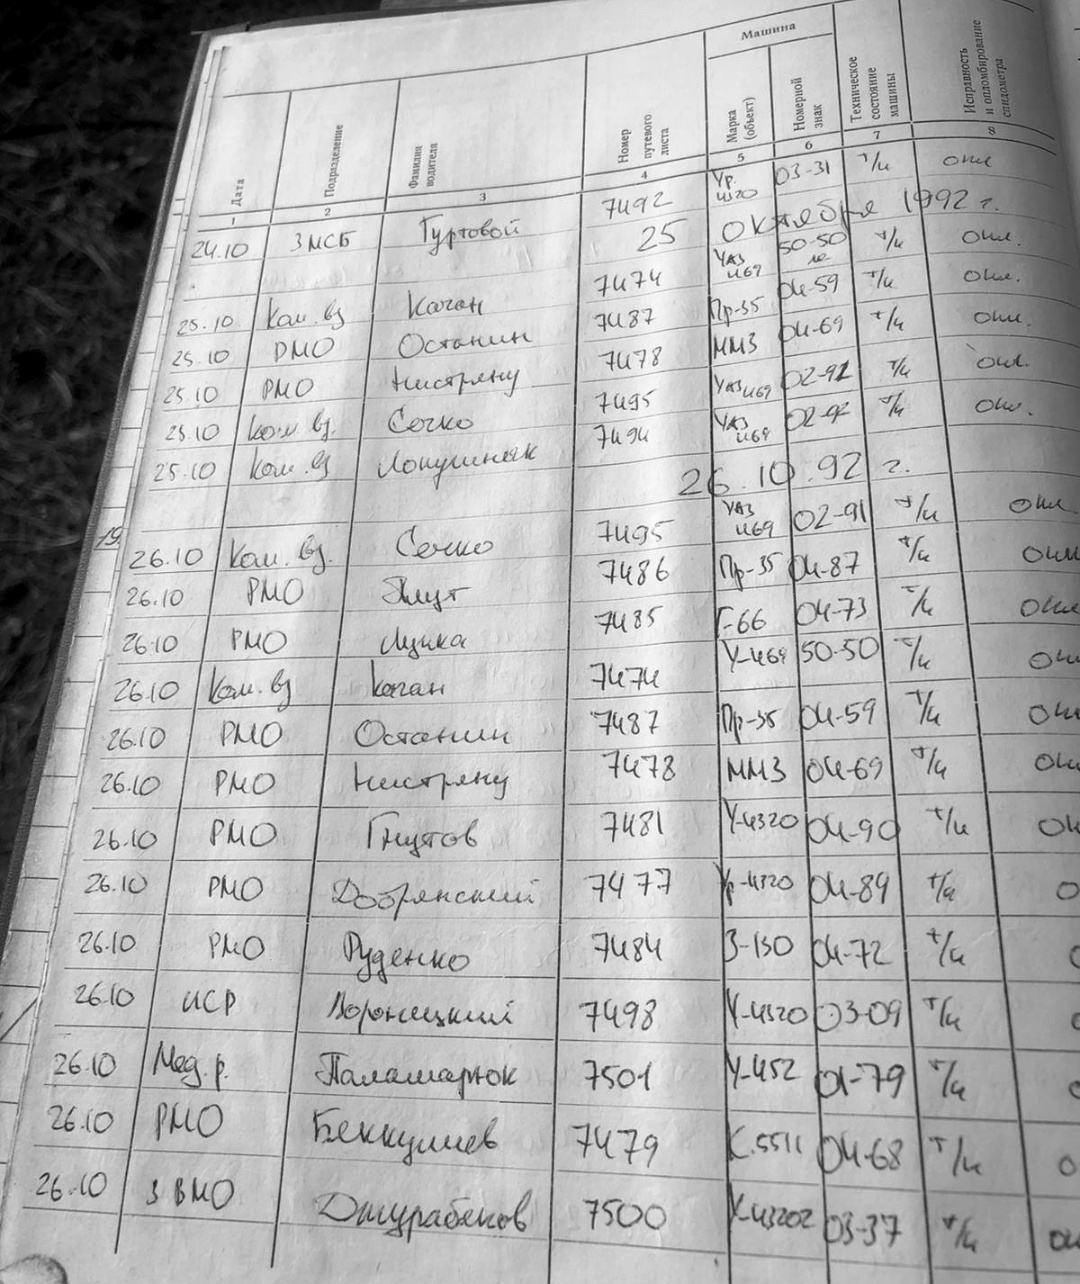 Машина
Дата Подразделение Фамилия водителя Номер путевого листа Марка (объект) Номерной знак Техническое состояние машины Исправность и опломбирование спидометра
1 2 3 4 5 6 7 8
24.10 3 МСБ Гуртовой 7492 Ур. 4320 03-31 т/и опл
25 октября 1992 г.
25.10 Ком. вз Каган 7474 УАЗ 469 50-50 т/и опл.
25.10 РМО Останин 7487 Пр-35 04-59 т/и опл.
25.10 РМО Нистряну 7478 ММЗ 04-69 т/и опл.
25.10 Ком. вз. Сечко 7495 УАЗ 469 02-91 т/и опл.
25.10 Ком. вз 7494 УАЗ 469 02-92 т/и опл.
26.10.92 г.
19
26.10 Ком. вз. Сечко 7495 УАЗ 469 02-91 т/и опл.
26.10 РМО 7486 Пр-35 04-87 т/и опл
26.10 РМО Лупка 7485 Г-66 04-73 т/и опл
26.10 Ком. вз Каган 7474 У-469 50-50 т/и
26.10 РМО Останин 7487 Пр-35 04-59 т/и
26.10 РМО Нистряну 7478 ММЗ 04-69 т/и
26.10 РМО Гнутов 7481 У-4320 04-90 т/и
26.10 РМО Добрянский 7477 Ур-4320 04-89 т/и
26.10 РМО Руденко 7484 З-130 04-72 т/и
26.10 ИСР Воронецкий 7498 У-4320 03-09 т/и
26.10 Мед. р. Паламарюк 7501 У-452 01-79 т/и
26.10 РМО Беккулиев 7479 К.5511 04-68 т/и
26.10 3 ВМО Джурабеков 7500 У-43202 03-37 т/и